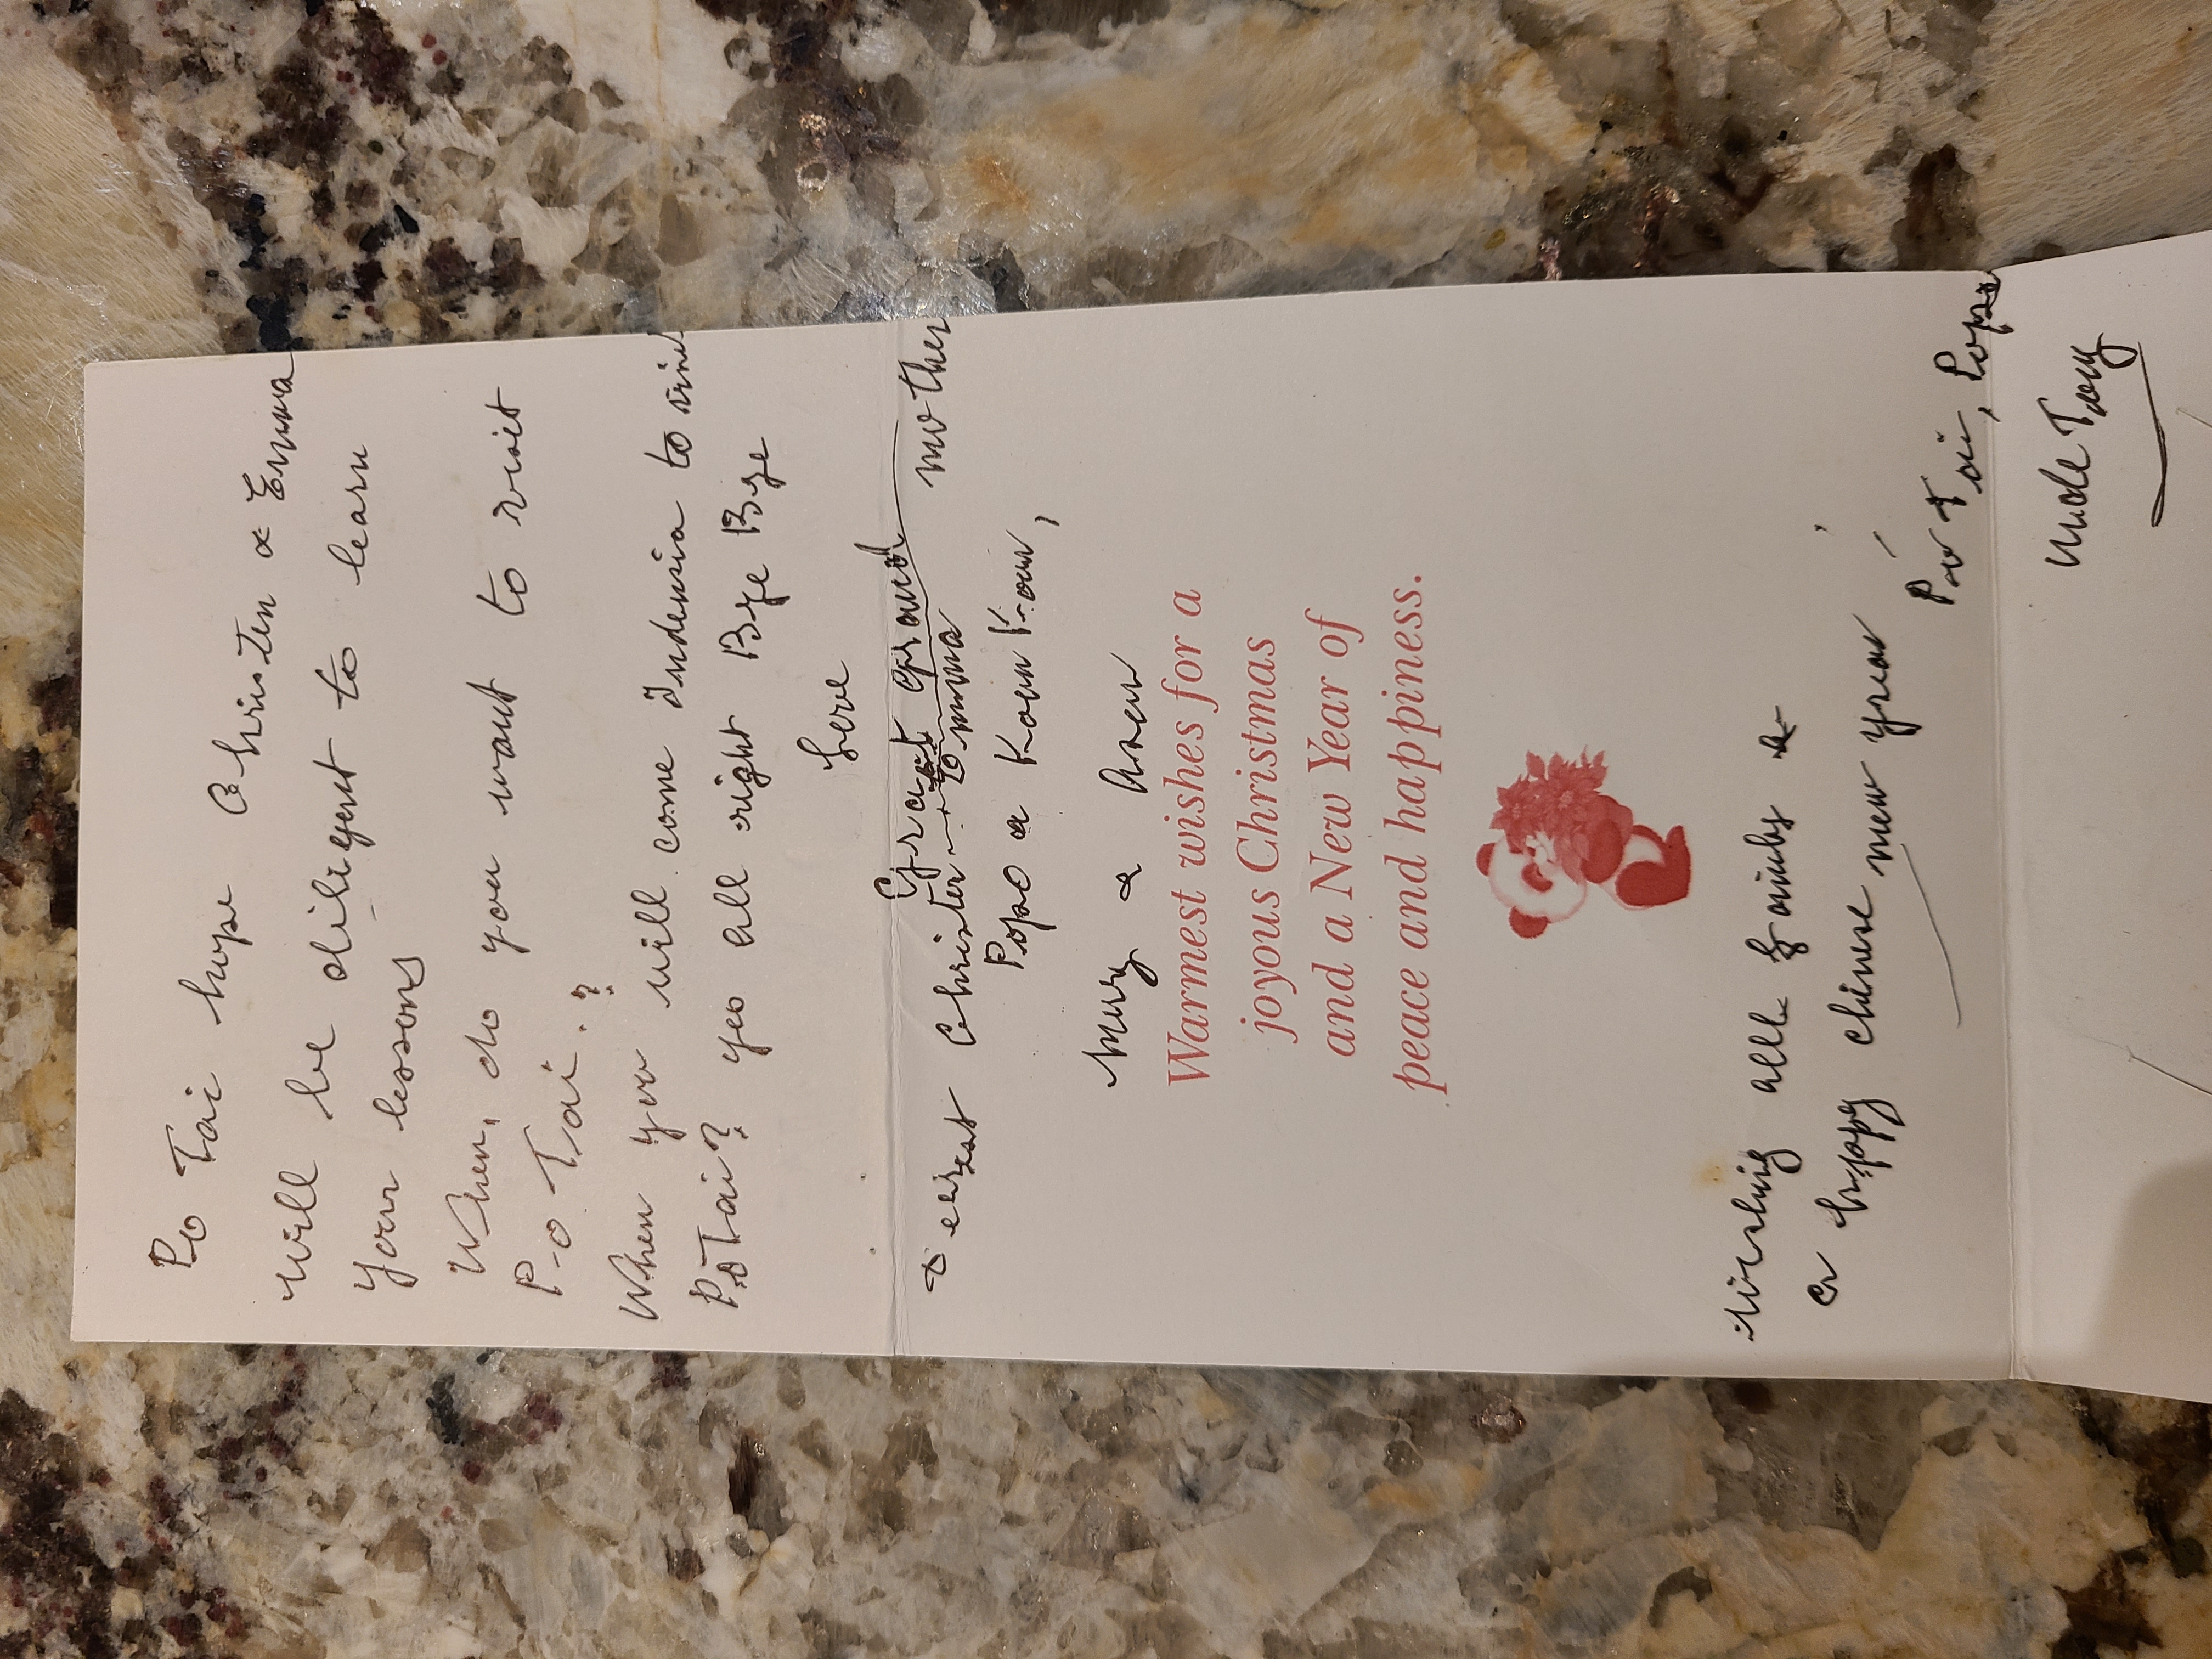 Po Tai hope Christen & Emma
will be diligent to learn
your lessons
When, do you want to visit
Po Tai.?
When you will come Indensia to visi
PoTai? yes all right Bye Bye
Love
Great Grand mother
Dearest Christen Emma
Popo & Koun Koun,
mery &
Warmest wishes for a
joyous Christmas
and a New Year of
peace and happiness.
Wishing all family &
a happy chinese new year
Po Tai, Popo
uncle Tony